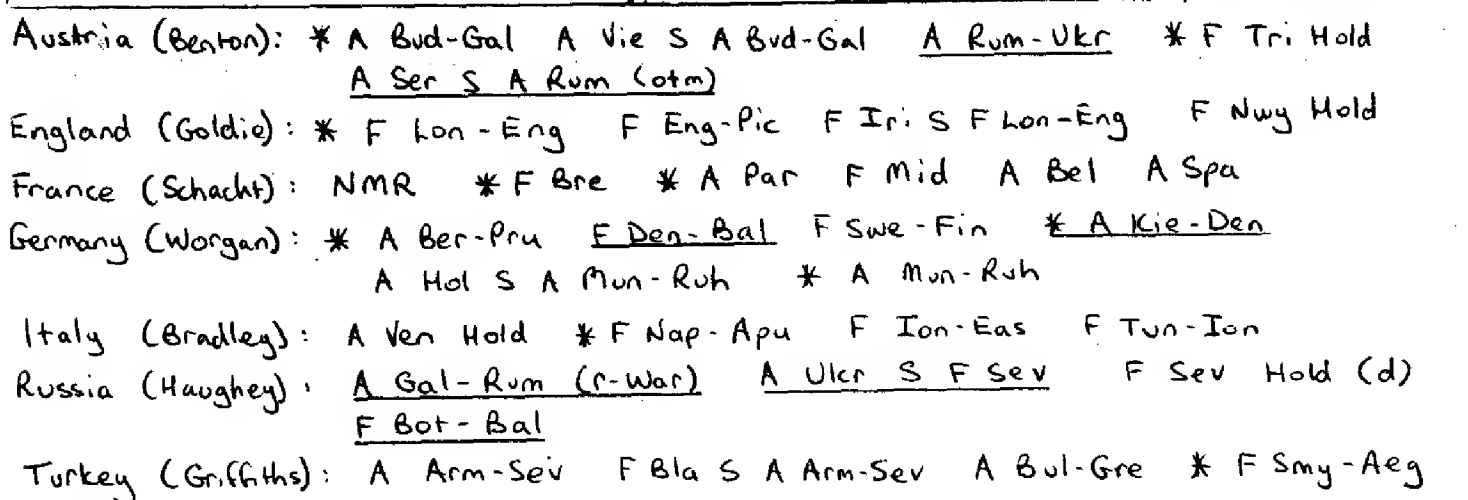 Austria (Benton): * A Bud-Gal A Vie S A Bud-Gal A Rum-Ukr * F Tri Hold
A Ser S A Rum (otm)
England (Goldie): * F Lon-Eng F Eng-Pic F Iri S F Lon-Eng F Nwy Hold
France (Schacht): NMR * F Bre * A Par F Mid A Bel A Spa
Germany (Worgan): * A Ber-Pru F Den-Bal F Swe-Fin * A Kie-Den
A Hol S A Mun-Ruh * A Mun-Ruh
Italy (Bradley): A Ven Hold * F Nap-Apu F Ion-Eas F Tun-Ion
Russia (Haughey): A Gal-Rum (r-War) A Ukr S F Sev F Sev Hold (d)
F Bot-Bal
Turkey (Griffiths): A Arm-Sev F Bla S A Arm-Sev A Bul-Gre * F Smy-Aeg